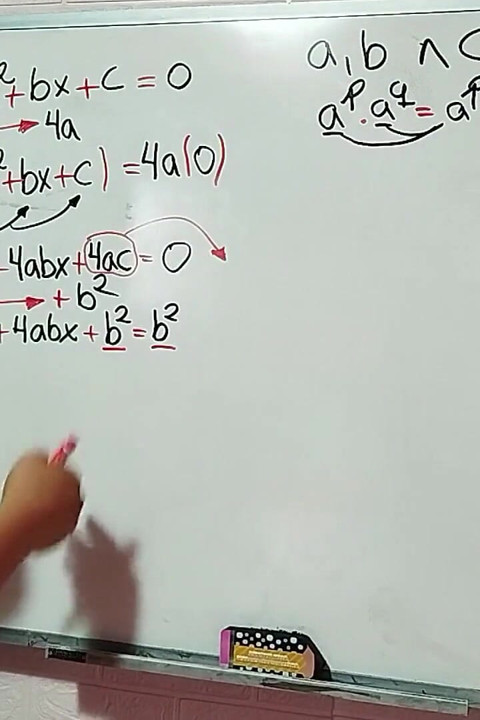 ²+bx+c=0
→4a
²+bx+c)=4a(0)
4abx+4ac=0
→+b²
+4abx+b²=b²
a,b ∧ C
aᵖ·a^q=aᵖ